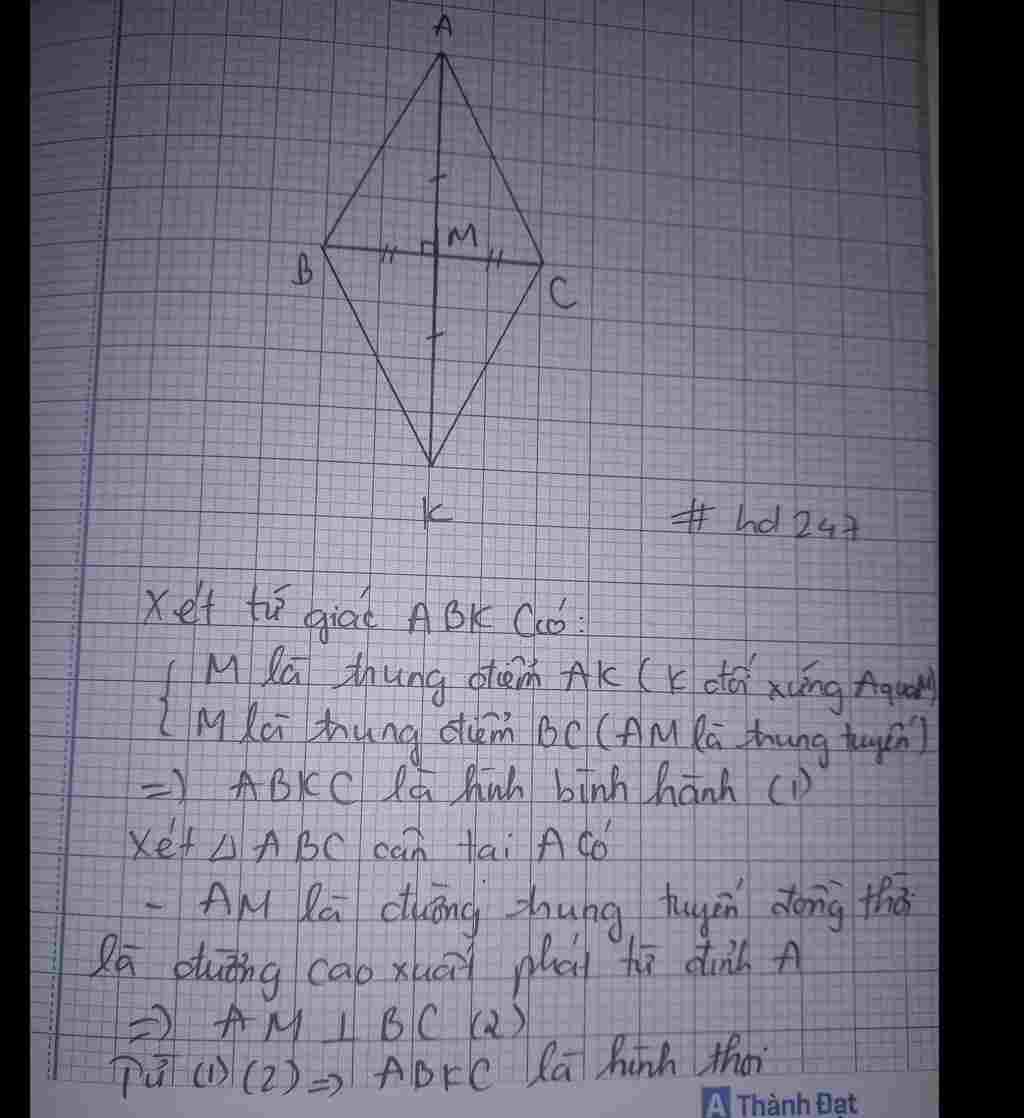 A
M
B
C
K
# hd247
Xét tứ giác ABKC có:
M là trung điểm AK (K đối xứng A qua M)
M là trung điểm BC (AM là trung tuyến)
=> ABKC là hình bình hành (1)
Xét Δ ABC cân tại A có
- AM là đường trung tuyến đồng thời
là đường cao xuất phát từ đỉnh A
=> AM ⊥ BC (2)
Từ (1) (2) => ABKC là hình thoi
A Thành Đạt